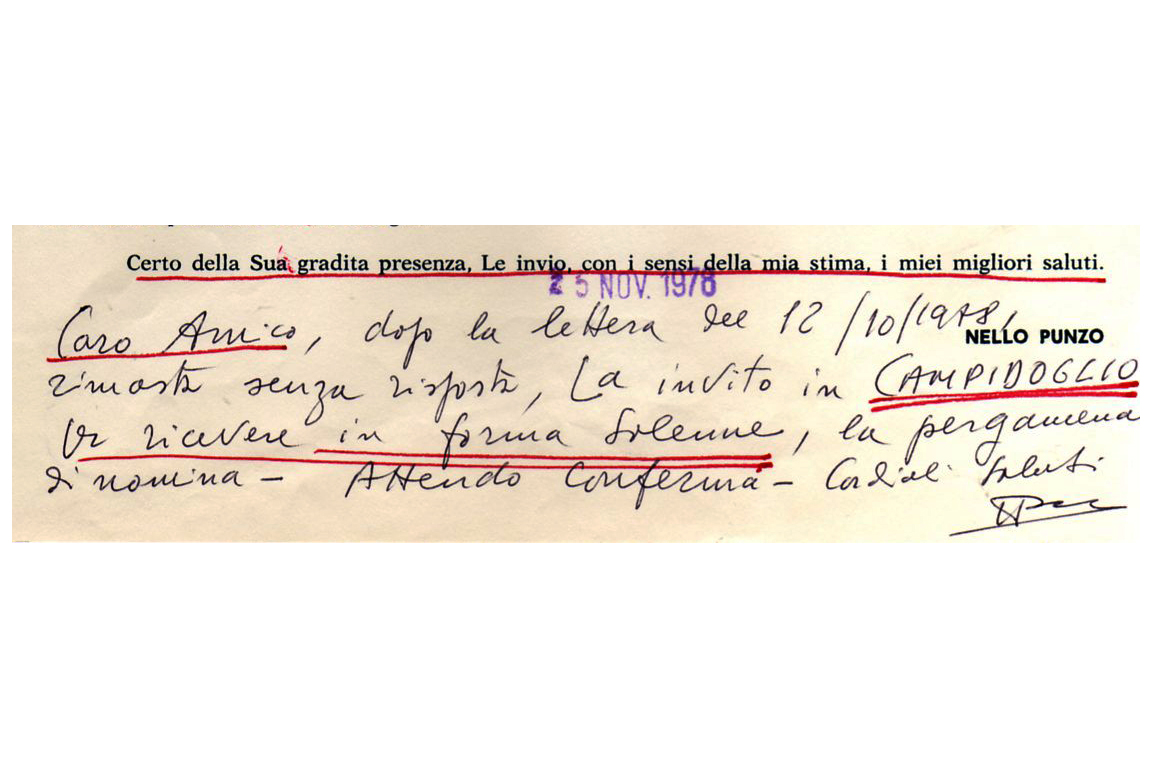 Certo della Sua gradita presenza, Le invio, con i sensi della mia stima, i miei migliori saluti.
25 NOV. 1978
Caro Amico, dopo la lettera del 12/10/1978,
NELLO PUNZO
rimasta senza risposta, La invito in CAMPIDOGLIO
per ricevere in forma solenne, la pergamena
di nomina - Attendo conferma - Cordiali saluti